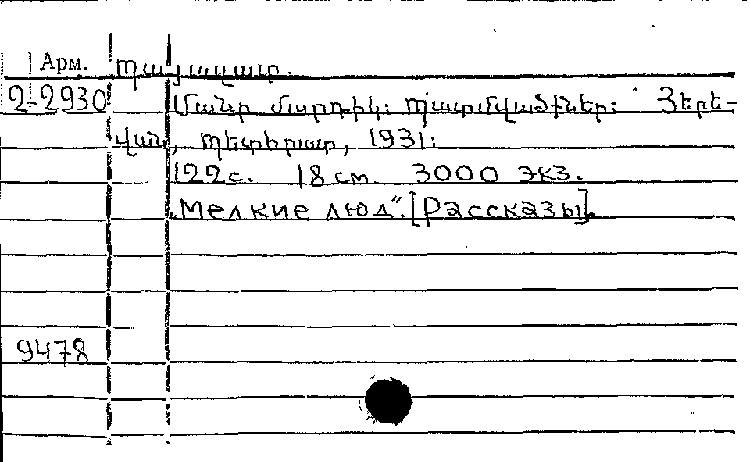 Арм. Պայազատ.
2-2930 Մանր մարդիկ: Պատմվածքներ: Յերե-
վան, Պետհրատ, 1931:
122 с. 18 см. 3000 экз.
„Мелкие люд“. [Рассказы].
9478